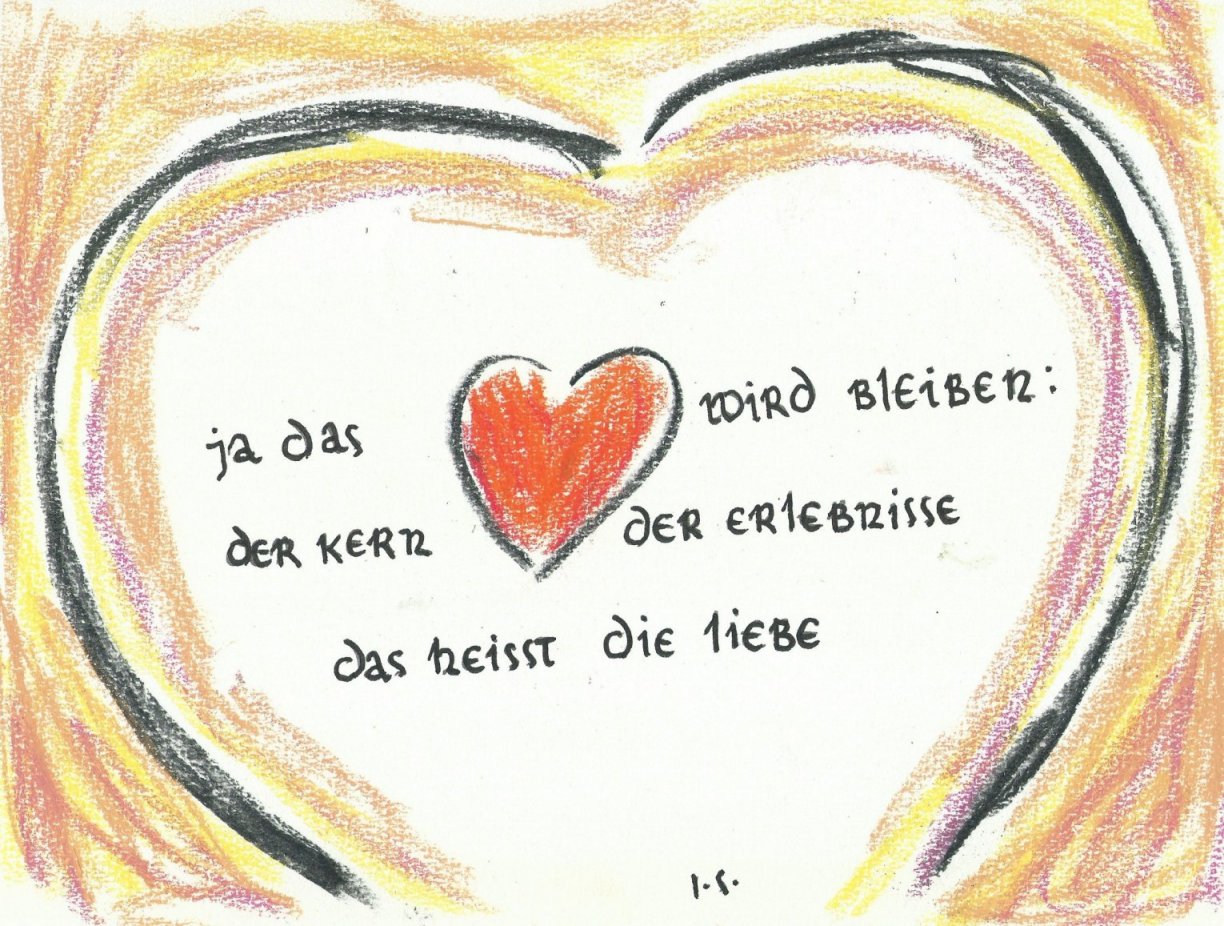 ja das wird bleiben:
der kern der erlebnisse
das heisst die liebe
I.S.